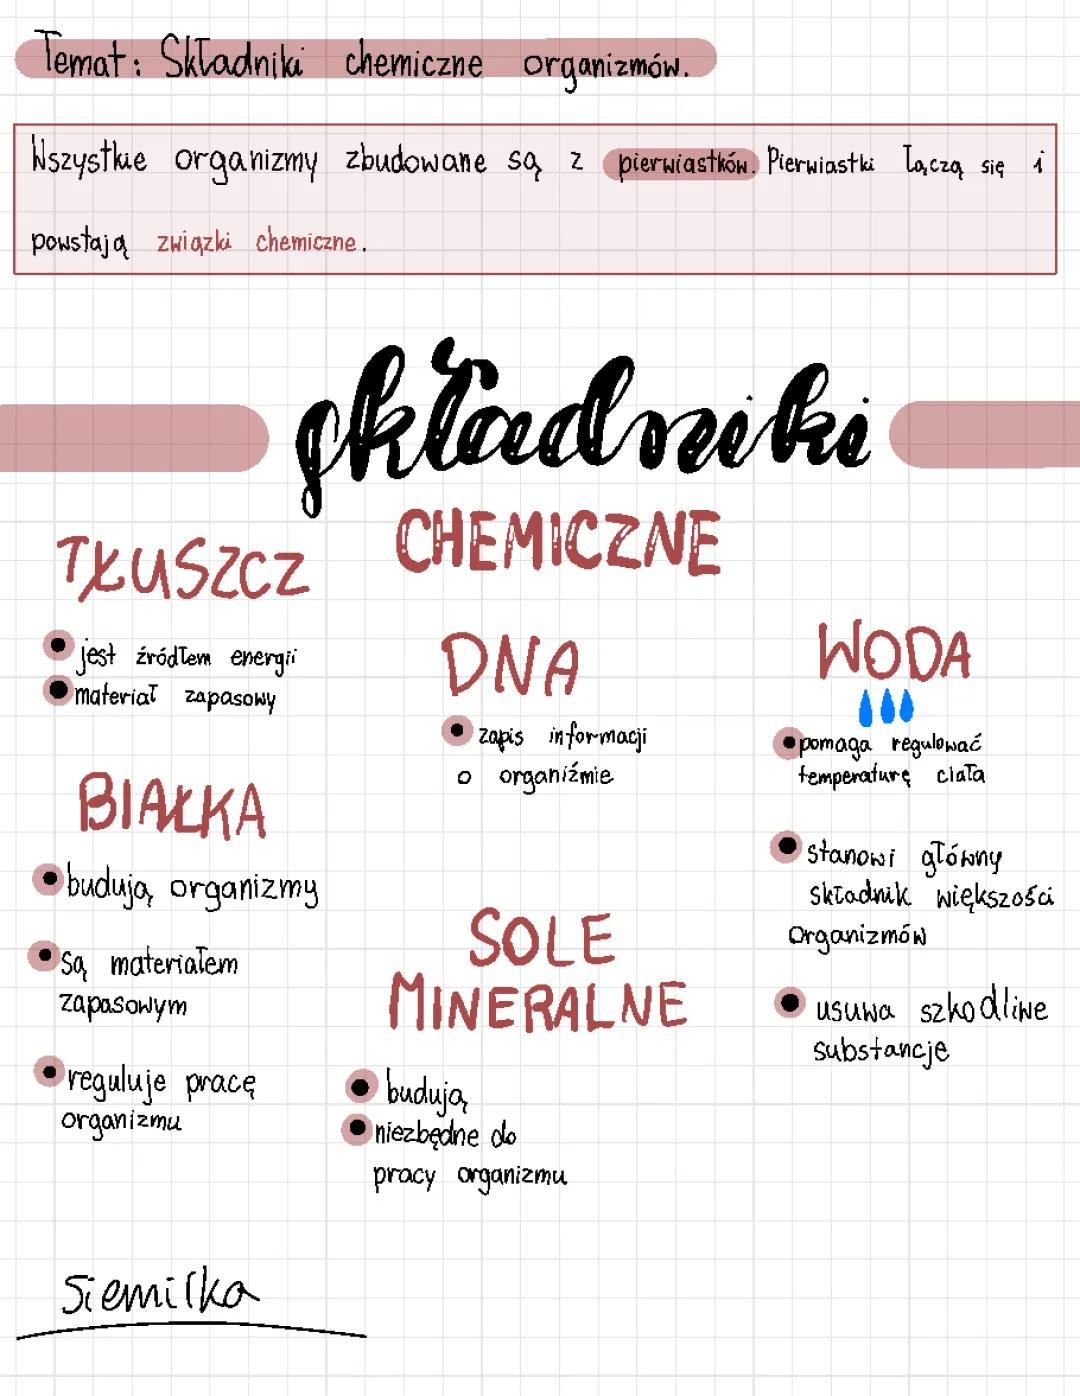 Temat: Składniki chemiczne organizmów.
Wszystkie organizmy zbudowane są z pierwiastków. Pierwiastki łączą się i
powstają związki chemiczne.
składniki
CHEMICZNE
TŁUSZCZ
jest źródłem energii
materiał zapasowy
BIAŁKA
budują organizmy
są materiałem
zapasowym
reguluje pracę
organizmu
DNA
zapis informacji
o organiźmie
SOLE
MINERALNE
budują
niezbędne do
pracy organizmu
WODA
pomaga regulować
temperaturę ciała
stanowi główny
składnik większości
organizmów
usuwa szkodliwe
substancje
Siemilka